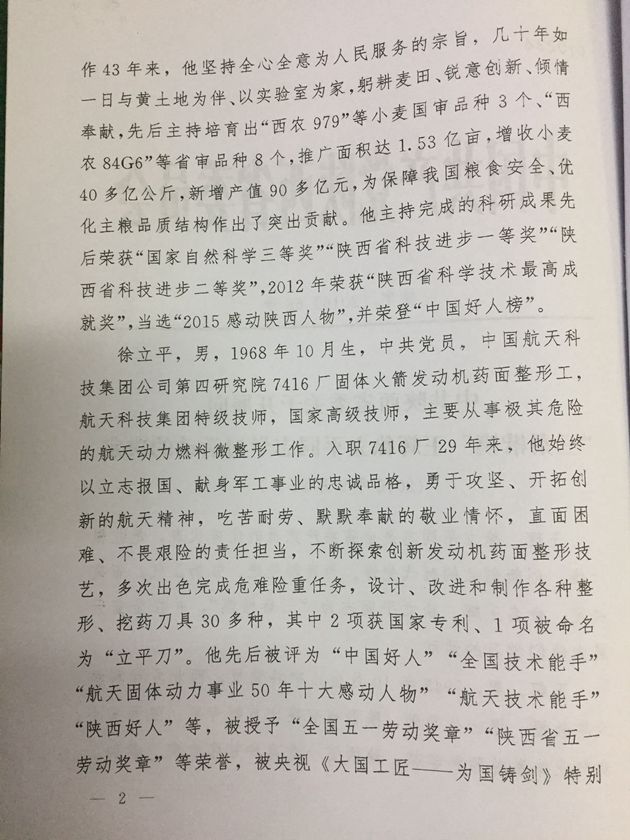 作 43 年来，他坚持全心全意为人民服务的宗旨，几十年如
一日与黄土地为伴、以实验室为家，躬耕麦田、锐意创新、倾情
奉献，先后主持培育出“西农 979”等小麦国审品种 3 个、“西
农 84G6”等省审品种 8 个，推广面积达 1.53 亿亩，增收小麦
40 多亿公斤，新增产值 90 多亿元，为保障我国粮食安全、优
化主粮品质结构作出了突出贡献。他主持完成的科研成果先
后荣获“国家自然科学三等奖”“陕西省科技进步一等奖”“陕
西省科技进步二等奖”，2012 年荣获“陕西省科学技术最高成
就奖”，当选“2015 感动陕西人物”，并荣登“中国好人榜”。
徐立平，男，1968 年 10 月生，中共党员，中国航天科
技集团公司第四研究院 7416 厂固体火箭发动机药面整形工，
航天科技集团特级技师，国家高级技师，主要从事极其危险
的航天动力燃料微整形工作。入职 7416 厂 29 年来，他始终
以立志报国、献身军工事业的忠诚品格，勇于攻坚、开拓创
新的航天精神，吃苦耐劳、默默奉献的敬业情怀，直面困
难、不畏艰险的责任担当，不断探索创新发动机药面整形技
艺，多次出色完成危难险重任务，设计、改进和制作各种整
形、挖药刀具 30 多种，其中 2 项获国家专利、1 项被命名
为“立平刀”。他先后被评为“中国好人”“全国技术能手”
“航天固体动力事业 50 年十大感动人物”“航天技术能手”
“陕西好人”等，被授予“全国五一劳动奖章”“陕西省五一
劳动奖章”等荣誉，被央视《大国工匠——为国铸剑》特别
— 2 —